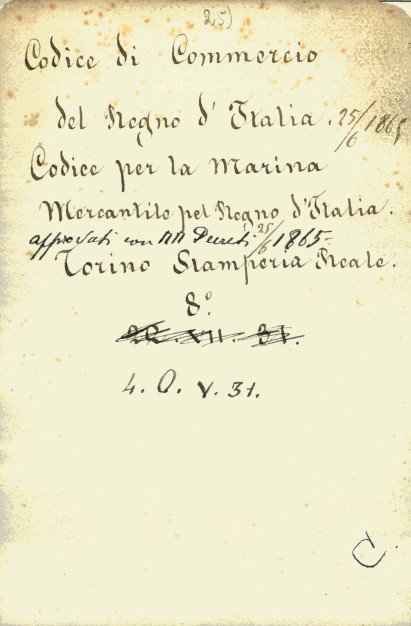 25)
Codice di Commercio
del Regno d'Italia. 25/6 1865
Codice per la Marina
Mercantile pel Regno d'Italia.
approvati con RR Decreti 25/6 1865-
Torino Stamperia Reale.
8.°
XII. 31.
4. Q. V. 31.
C.